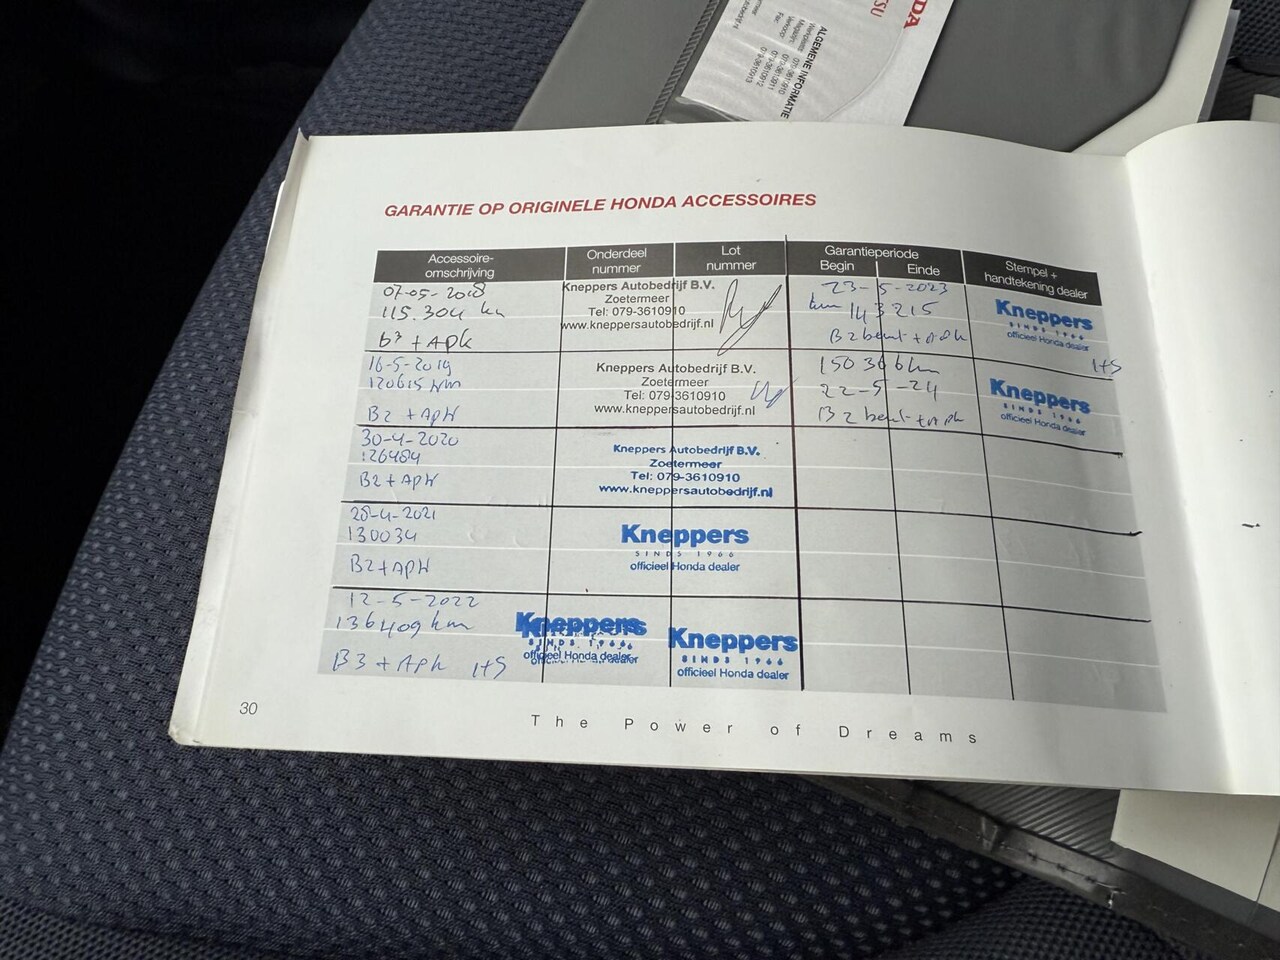 HONDA
ALGEMENE INFORMATIE
GARANTIE OP ORIGINELE HONDA ACCESSOIRES
Accessoire-
omschrijving
Onderdeel
nummer
Lot
nummer
Garantieperiode
Begin
Einde
Stempel +
handtekening dealer
07-05-2018
115.304 km
b3 + APK
Kneppers Autobedrijf B.V.
Zoetermeer
Tel: 079-3610910
www.kneppersautobedrijf.nl
23-5-2023
km 143215
B2 beurt + APK
Kneppers
SINDS 1966
officieel Honda dealer
16-5-2019
120615 km
B2 + APK
Kneppers Autobedrijf B.V.
Zoetermeer
Tel: 079-3610910
www.kneppersautobedrijf.nl
150366 km
22-5-24
B2 beurt + APK
HS
Kneppers
SINDS 1966
officieel Honda dealer
30-4-2020
126484
B2 + APK
Kneppers Autobedrijf B.V.
Zoetermeer
Tel: 079-3610910
www.kneppersautobedrijf.nl
28-4-2021
130034
B2 + APK
Kneppers
SINDS 1966
officieel Honda dealer
12-5-2022
136409 km
B3 + APK HS
Kneppers
SINDS 1966
officieel Honda dealer
Kneppers
SINDS 1966
officieel Honda dealer
30
The Power of Dreams